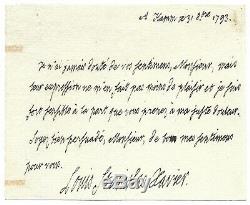 A Hamm ce 31 8bre 1793.
Je n'ai jamais douté de vos sentimens, Monsieur, mais
leur expression ne m'en fait pas moins de plaisir et je suis
fort sensible à la part que vous prenez, à ma juste douleur.
Soyez bien persuadé, Monsieur, de tous mes sentimens
pour vous.
Louis Stanislas Xavier.